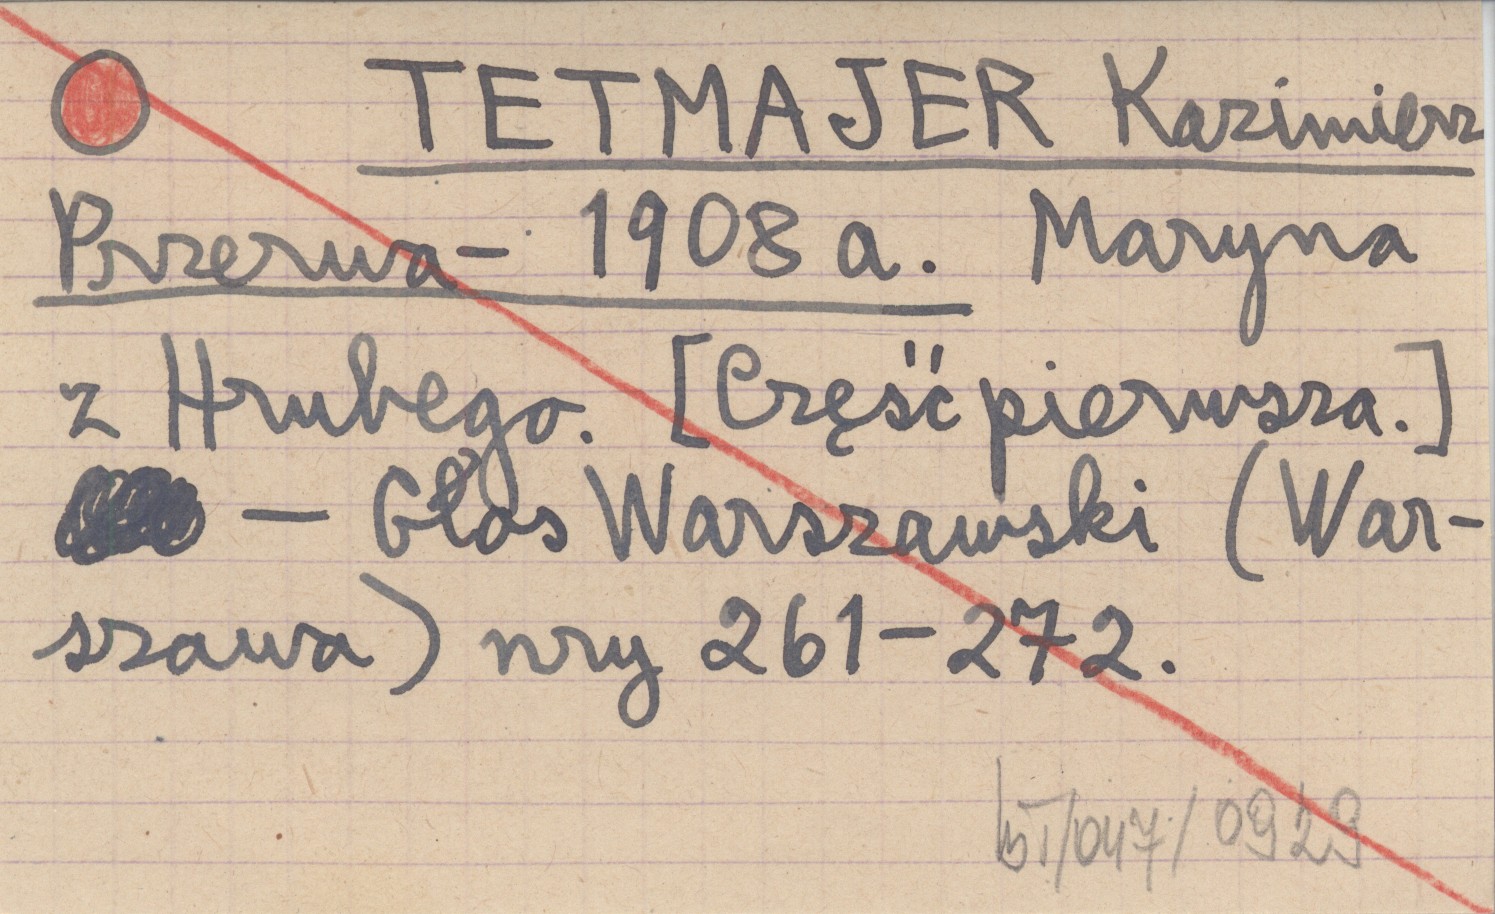 TETMAJER Kazimierz
Przerwa- 1908 a. Maryna
z Hrubego. [Część pierwsza.]
— Głos Warszawski (War-
szawa) nry 261-272.
bT/047/0929